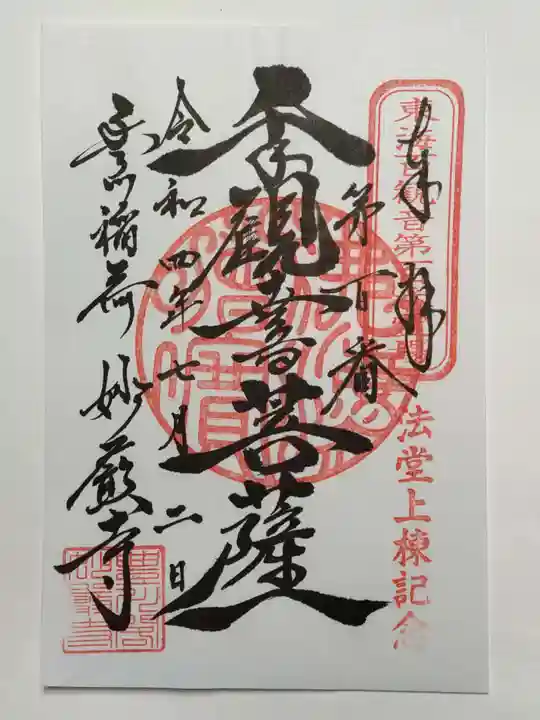 東海百観音第
奉拝
法堂上棟記念
第百番
千手観音菩薩
令和四年七月二日
豊川稲荷 妙厳寺